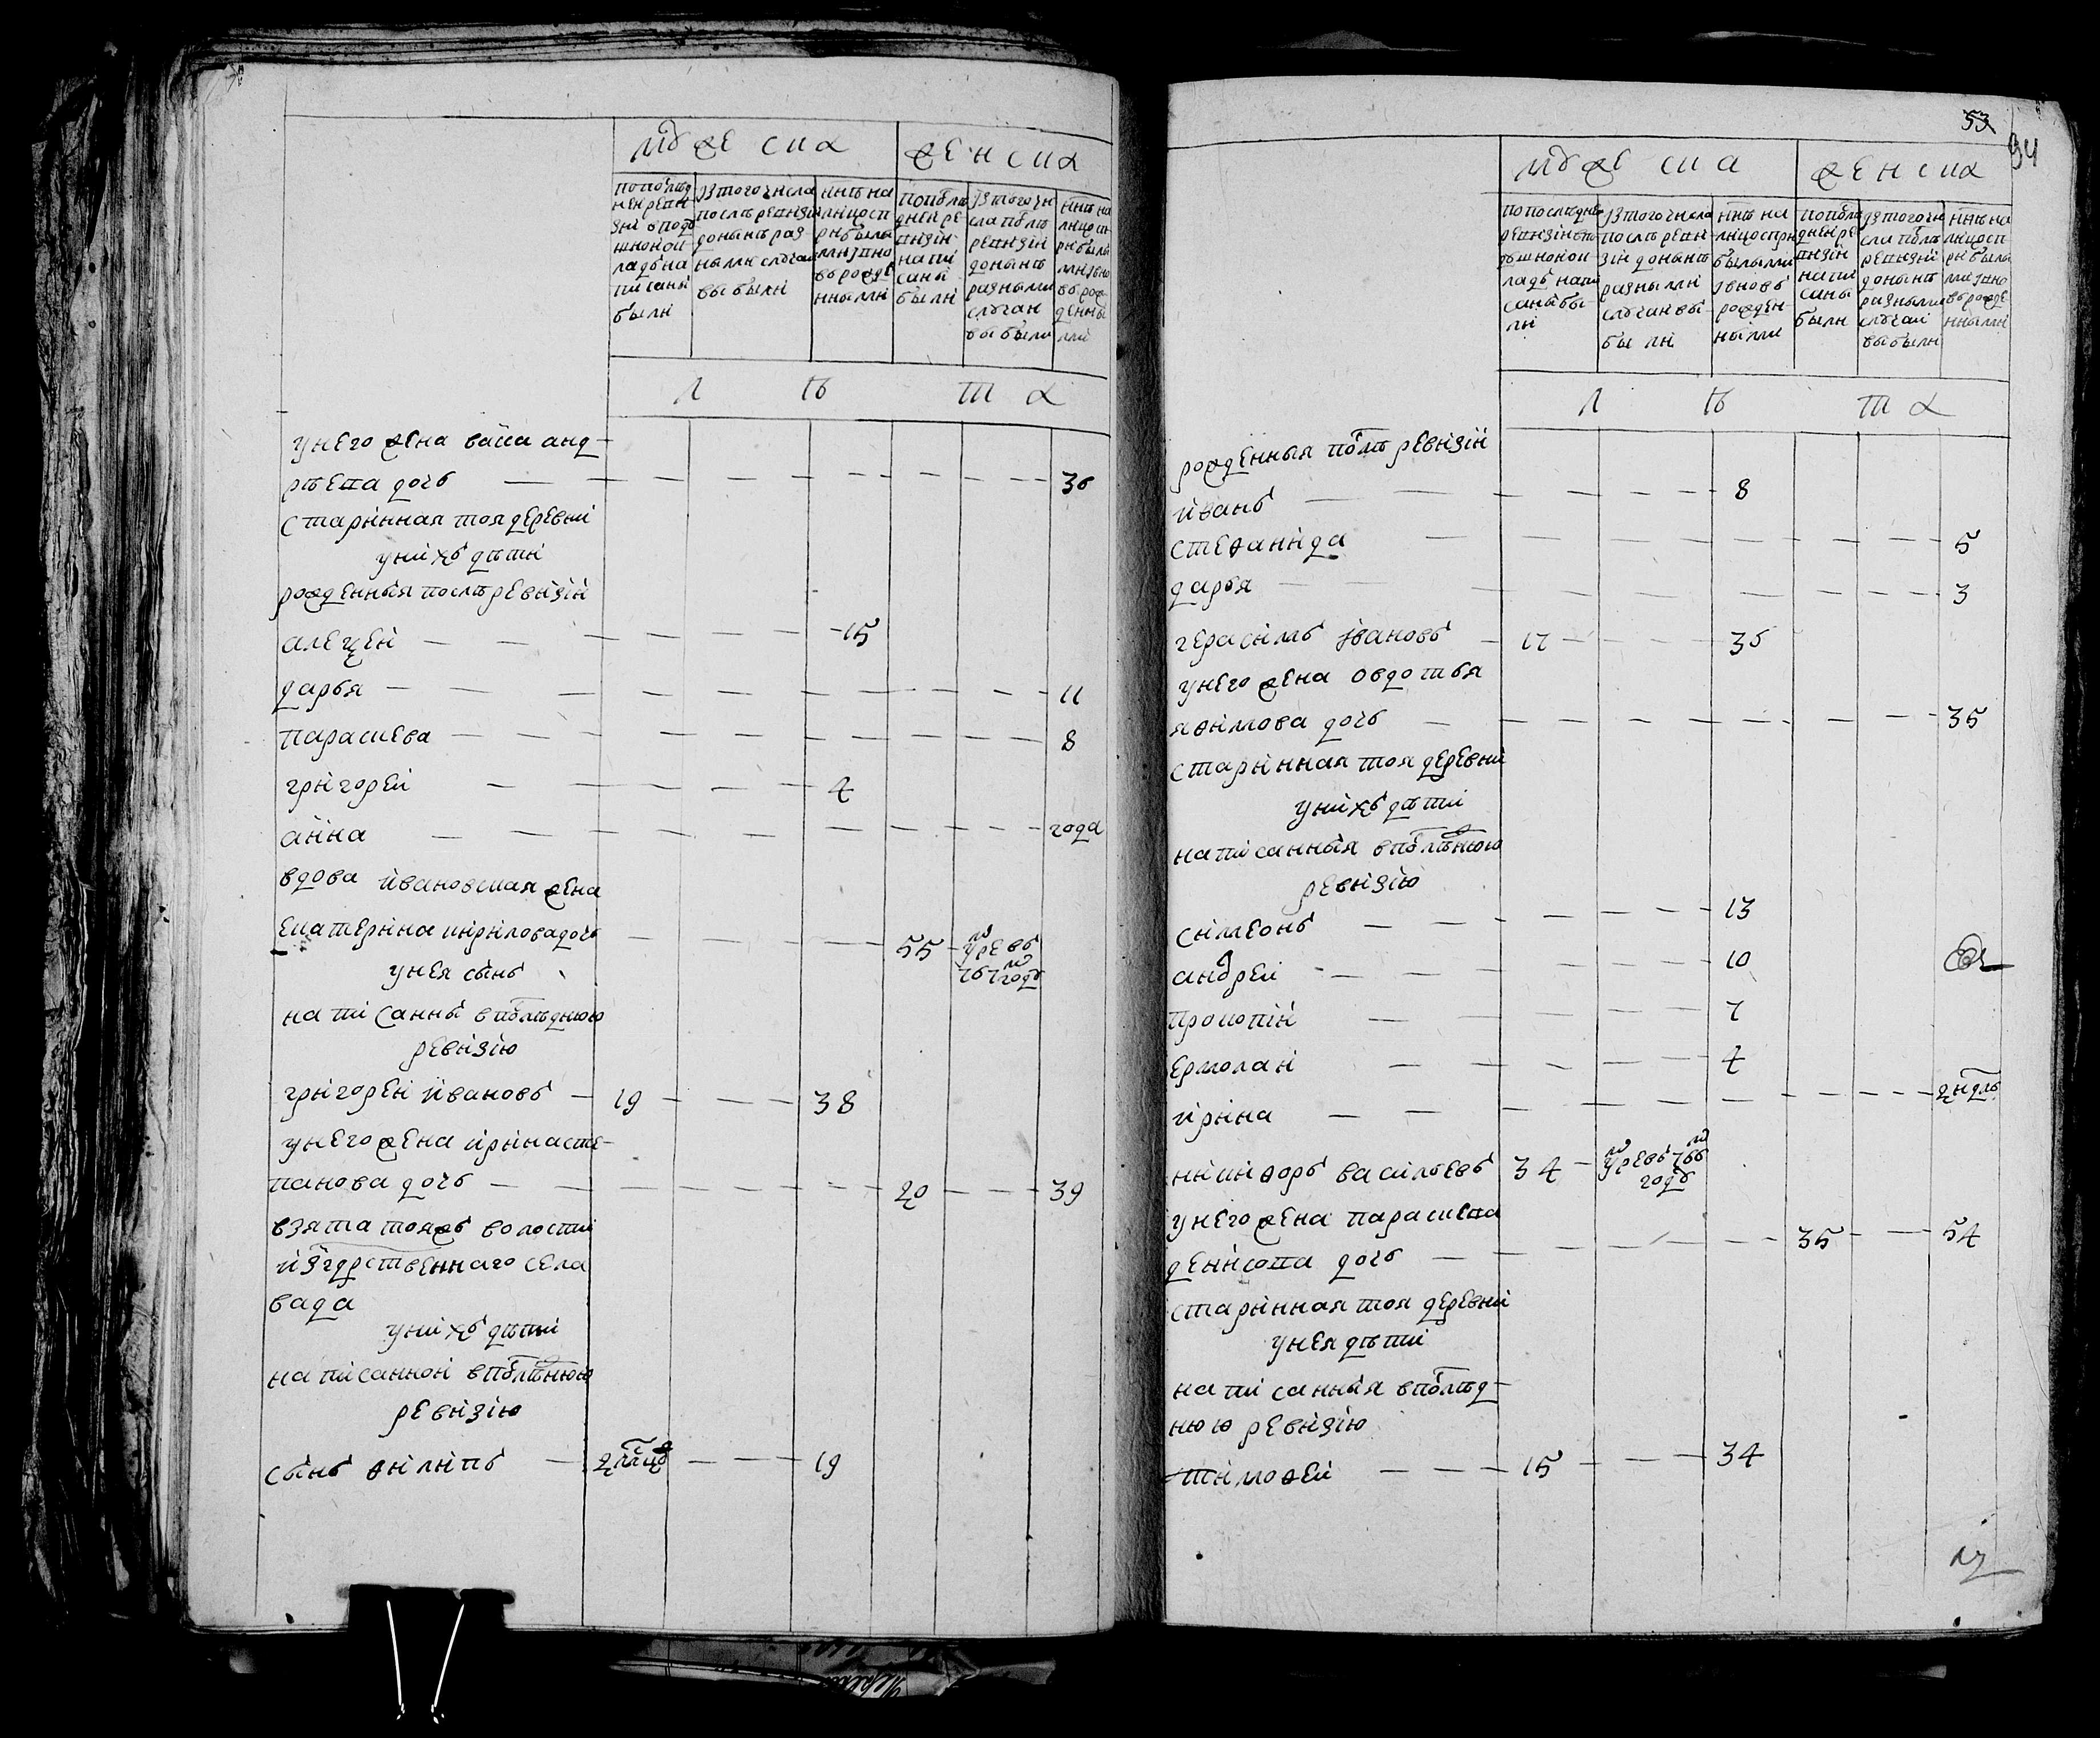 мужеска
женска
по послѣд
ней реви
зіи в поду
шной ок
ладъ на
писаны
были
из того числа
послѣ ревизіи
до нынѣ раз
ными случаи
выбыли
нынѣ на
лицо с п
рибылы
ми и вно
вь рожде
нными
по послѣ
дней ре
визіи
напи
саны
были
из того чи
сла послѣ
ревизіи
до нынѣ
разными
случаи
выбыли
нынѣ на
лицо с п
рибылы
ми и вно
вь рож
денны
ми
лѣта
у него жена васса анд
рѣева дочь — 36
старинная тоя деревни
у нихъ дѣти
рожденныя послѣ ревизіи
алеѯей — 15
дарья — 11
параскева — 8
григорей — 4
анна — года
вдова ивановская жена
екатерина кирилова дочь — 55
у нея сынъ
написанны в послѣднюю
ревизію
григорей ивановъ — 19 — 38
у него жена ирина сте
панова дочь — 20 — 39
взята тояжъ волости
из гдрственнаго села
вада
у нихъ дѣти
написанной в послѣнюю
ревизію
сынъ филипъ — 2 мсцъ — 19
53
94
мужеска
женска
по послѣдне
ревизіи в по
душной ок
ладъ напи
саны бы
ли
из того числа
послѣ реви
зіи до нынѣ
разными
случаи вы
были
нынѣ на
лицо с при
былыми
и вновь
рожден
ными
по послѣ
дней ре
визіи
напи
саны
были
из того чи
сла послѣ
ревизіи
до нынѣ
разными
случаи
выбыли
нынѣ на
лицо с п
рибылы
ми и вно
вь рожде
нными
лѣта
рожденныя послѣ ревизіи
иванъ — 8
стефанида — 5
дарья — 3
герасимъ ивановъ — 17 — 36
у него жена овдотья
яфимова дочь — 35
старинная тоя деревни
у нихъ дѣти
написанныя в послѣнюю
ревизію
симеонъ — 13
андрей — 10
прокопій — 7
ермолай — 4
ирина — 2 недлъ
никифоръ васильевъ 34 —
у него жена параскева
денисова дочь — 35 — 54
старинная тоя деревни
у нея дѣти
написанныя в послѣд
нюю ревизію
тимофей — 15 — 34